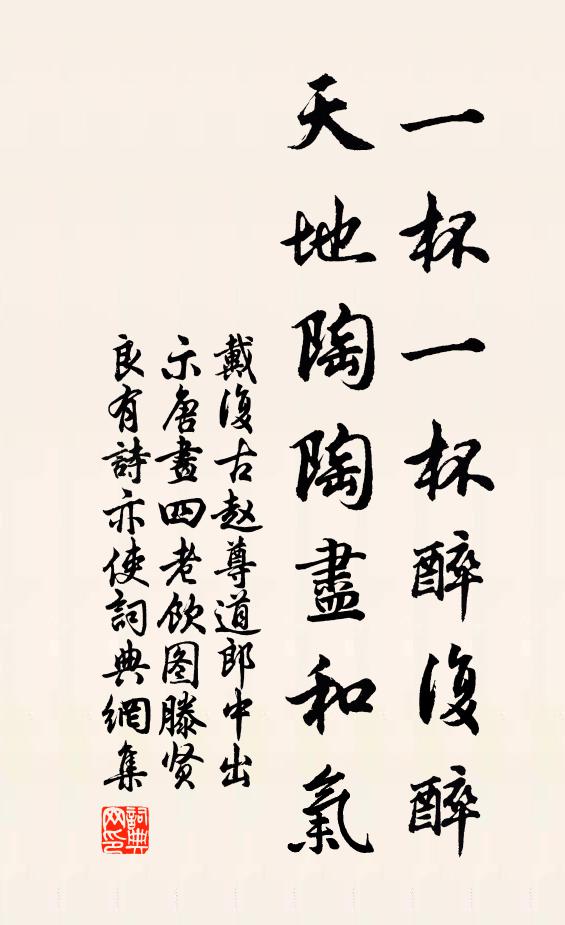 一杯一杯醉復醉
天地陶陶盡和氣
戴復古赵尊道郎中出
示唐畫四老饮图滕贤
良有詩亦使詞典網集
詞典
网印